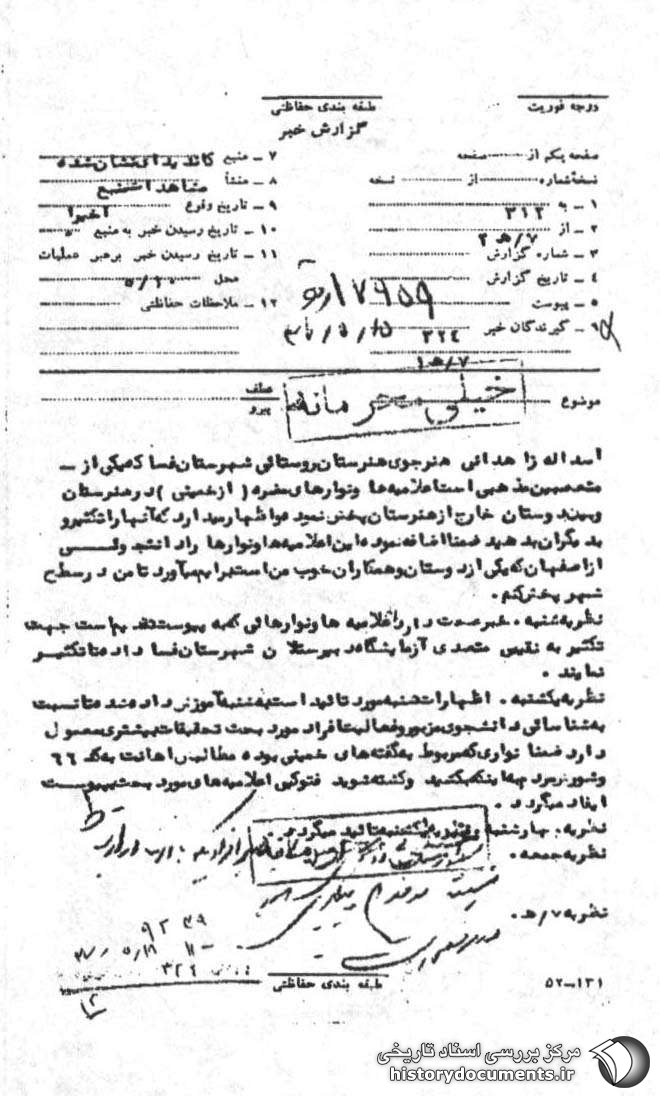 درجه فوریت
طبقه بندی حفاظتی
گزارش خبر
صفحه یکم از صفحه
نسخه شماره از نسخه
۱ ـ به ۳۱۲
۲ ـ از ۷/هـ ۲
۳ ـ شماره گزارش
۴ ـ تاریخ گزارش
۵ ـ پیوست
۶ ـ گیرندگان خبر ۳۲۴
۷/هـ ۱
۷ ـ منبع کاندیدای نشان شده
۸ ـ منشأ مشاهدات منبع
۹ ـ تاریخ وقوع اخیرا
۱۰ ـ تاریخ رسیدن خبر به منبع
۱۱ ـ تاریخ رسیدن خبر برهبر عملیات
محل
۱۲ ـ ملاحظات حفاظتی
موضوع
عطف
پیرو
خیلی محرمانه
اسداله زاهدانی هنرجوی هنرستان روستائی شهرستان فسا که یکی از ـ
متعصبین مذهبی است اعلامیه ها و نوارهای مضره (از خمینی) در هنرستان
و بین دوستان خارج از هنرستان پخش نموده و اظهار میدارد که آنها را تکثیر و
بدیگران بدهید ضمنا اضافه نموده این اعلامیه ها و نوارها را دانشجوئی
از اصفهان که یکی از دوستان و همکاران خوب من است برایم میآورد تا من در سطح
شهر پخش کنم .
نظریه شنبه . خبر صحت دارد اعلامیه ها و نوارهائی که به پیوست تقدیم است جهت
تکثیر به نفیس متصدی آزمایشگاه دبیرستان شهرستان فسا داده تا تکثیر
نمایند .
نظریه یکشنبه . اظهارات شنبه مورد تائید است به شنبه آموزش داده شده تا نسبت
به شناسائی دانشجوی مزبور و فعالیت افراد مورد بحث تحقیقات بیشتری معمول
دارد ضمنا نواری که مربوط به گفته های خمینی بوده مطالبش اهانت به کد ۶۶
و شورش مردم به اینکه بکشید و کشته شوید فتوکپی اعلامیه های مورد بحث به پیوست
ایفاد میگردد .
نظریه : چهارشنبه و نظریه یکشنبه تائید میگردد .
نظریه جمعه .
نظریه ۷/هـ .
طبقه بندی حفاظتی
۱۳۱ـ۵۲
مرکز بررسی اسناد تاریخی
historydocuments.ir